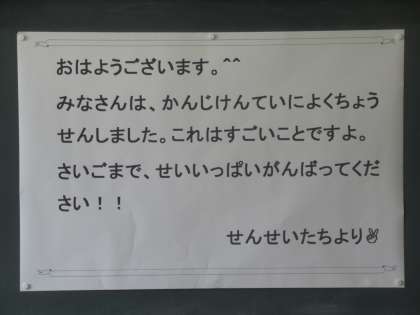 おはようございます。^^
みなさんは、かんじけんていによくちょう
せんしました。これはすごいことですよ。
さいごまで、せいいっぱいがんばってくだ
さい！！
せんせいたちより✌